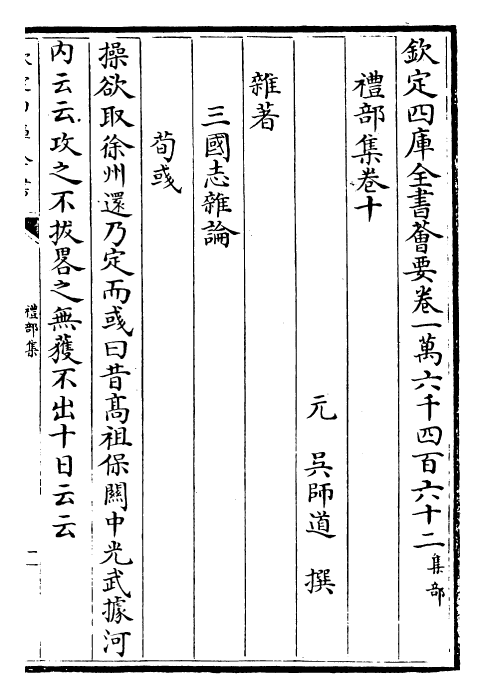 欽定四庫全書薈要卷一萬六千四百六十二集部
禮部集卷十
元　吳師道　撰
雜著
三國志雜論
荀彧
操欲取徐州還乃定而彧曰昔髙祖保關中光武據河
内云云攻之不拔畧之無獲不出十日云云
禮部集
二